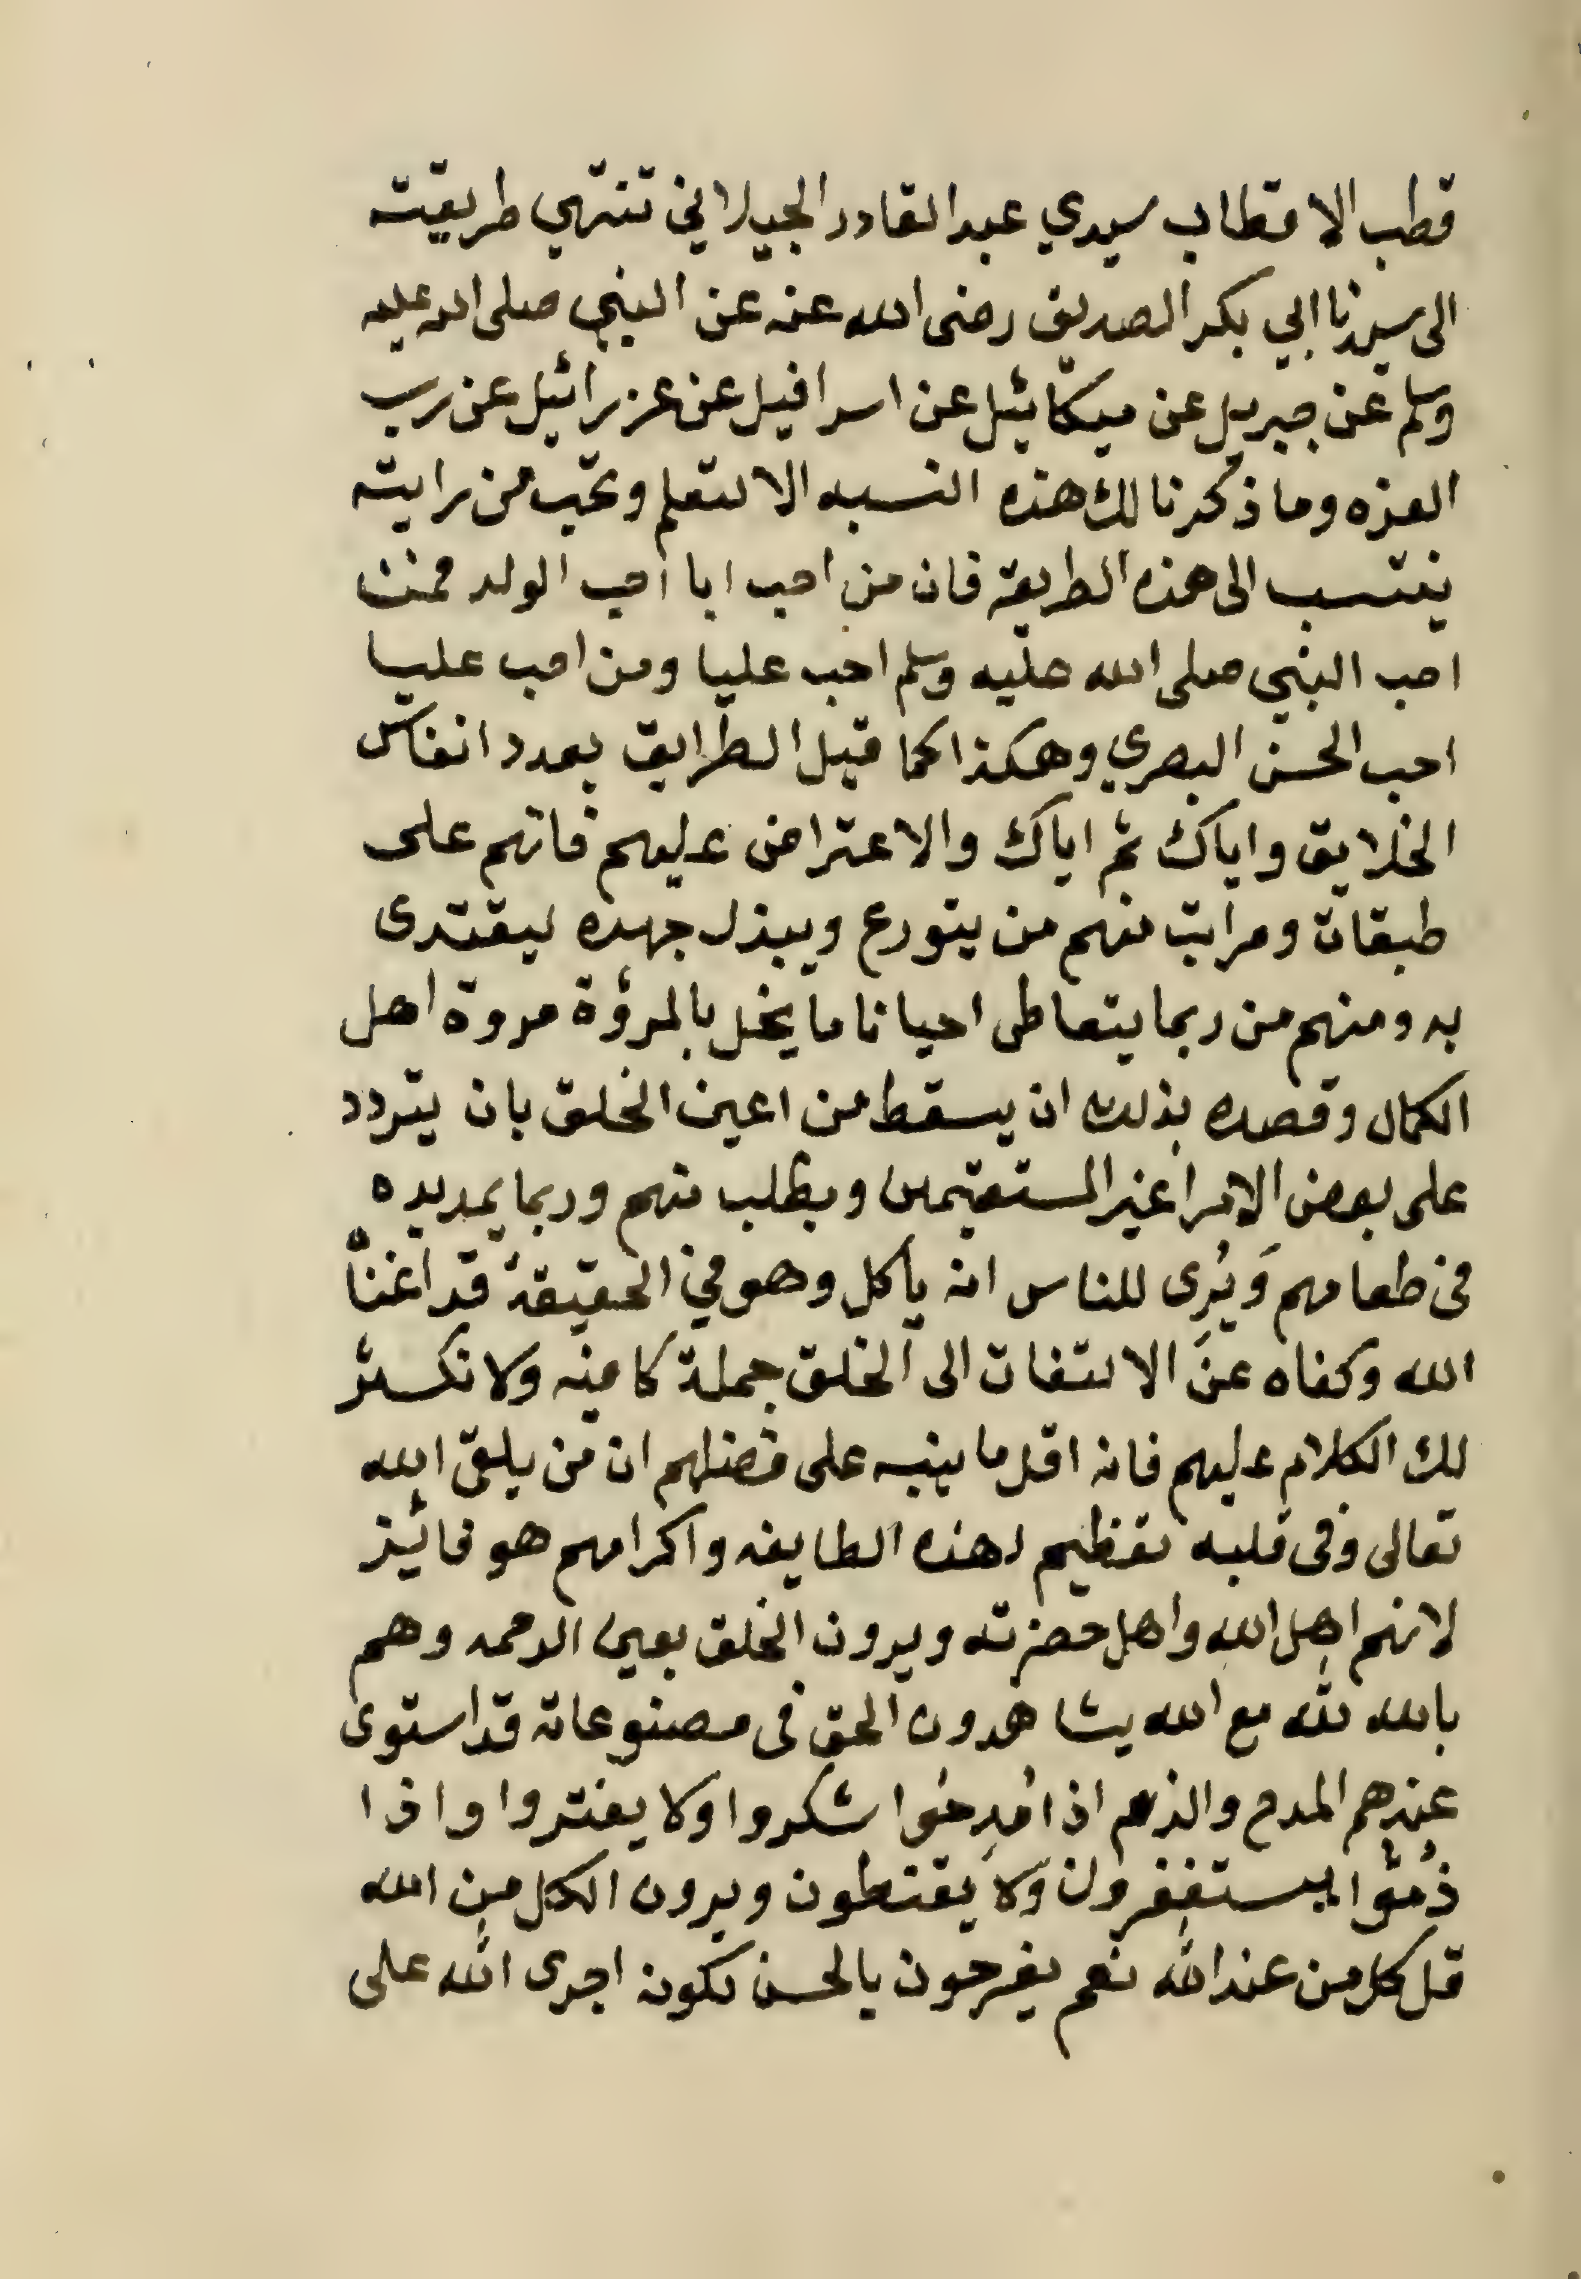 قطب الاقطاب سيدي عبدالقادر الجيلاني تنتهي طريقته
الى سيدنا ابي بكر الصديق رضى الله عنه عن النبي صلى الله عليه
وسلم عن جبريل عن ميكائيل عن اسرافيل عن عزرائيل عن رب
العزه وما ذكرنا لك هذه النسبه الا لتعلم وتحب من رايته
ينتسب الى هذه الطريقة فان من احب ابا احب الولد فمن
احب النبي صلى الله عليه وسلم احب عليا ومن احب عليا
احب الحسن البصري وهكذا كما قيل الطرايق بعدد انفاس
الخلايق واياك ثم اياك والاعتراض عليهم فانهم على
طبقات ومراتب منهم من يتورع ويبذل جهده ليقتدى
به ومنهم من ربما يتعاطى احيانا ما يخل بالمرؤة مروة اهل
الكمال وقصده بذلك ان يسقط من اعين الخلق بان يتردد
على بعض الامرا غير المستقيمين ويطلب منهم وربما يمد يده
فى طعامهم وَيُرِى للناس انه يأكل وهو في الحقيقة قد اغناه
الله وكفاه عن الالتفات الى الخلق جملة كافيه ولا تكستر
لك الكلام عليهم فانه اقل ما ينبه على فضلهم ان من يلق الله
تعالى وفى قلبه تعظيم لهذه الطايفه واكرامهم هو فائيز
لانهم اهل الله واهل حضرته ويرون الخلق بعين الرحمه وهم
بالله لله مع الله يشاهدون الحق فى مصنوعاته قد استوى
عندهم المدح والذم اذا مُدِحُوا شكروا ولا يغتروا واذا
ذُمّوا يستغفرون ولا يقنطون ويرون الكل من الله
قل كل من عند الله نعم يفرحون بالحسن لكونه اجرى الله على